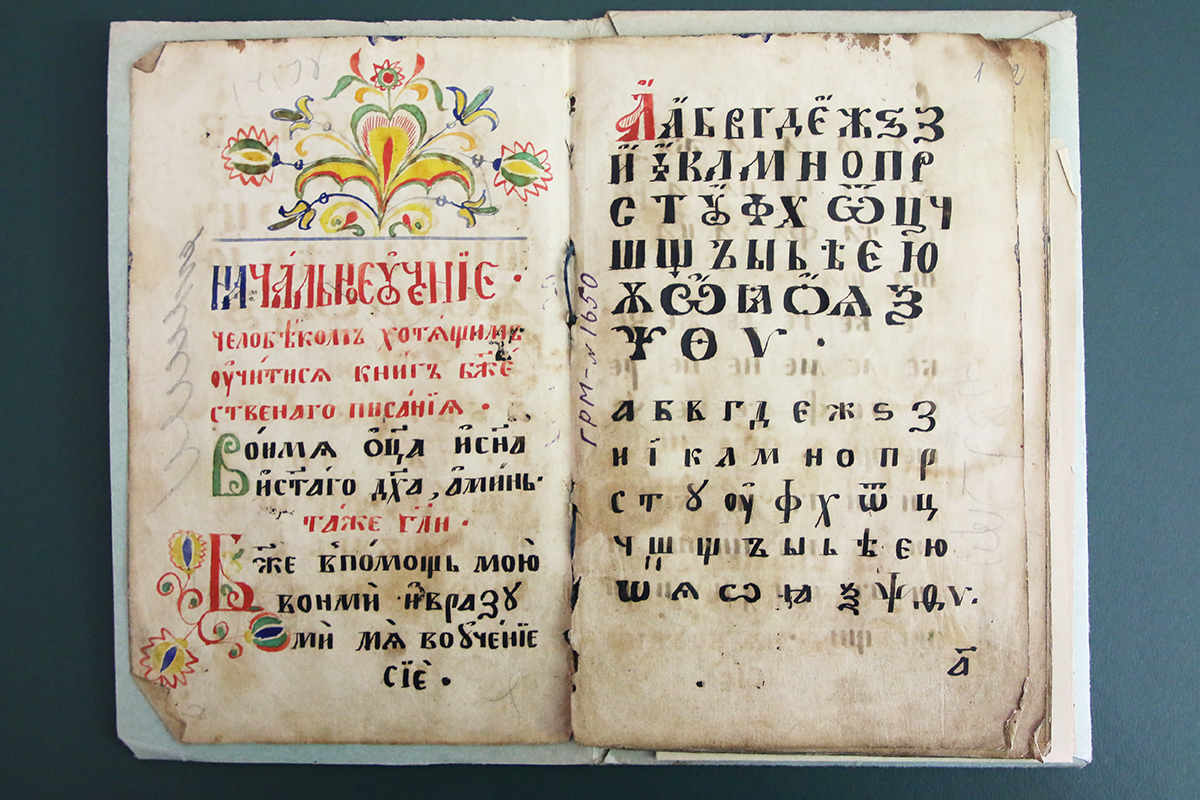 НАЧА́ЛЬНОЕ ОУ҆ЧЕ́НЇЕ ·
человѣ́комъ хотѧ́щимъ
ᲂу҆чи́тисѧ книгъ бж҃е́
ственаго писа́нїѧ ·
Во и҆́мѧ ѻ҆ц҃а и҆ сн҃а
и҆ ст҃а́го дх҃а, а҆ми́нь·
та́же гл҃и ·
Бж҃е в̾ по́мощь мою̀
вонмѝ и҆ вразꙋ
мѝ мѧ̀ во ᲂу҆че́нїе
сїѐ .
1 2
ГРМ-N1650
А҆ А҆ Б В Г Д Е҆ Ж Ѕ З
И҆ І҆ К Л М Н О П Р
С Т Ꙋ҆ Ф Х Ѿ Ц Ч
Ш Щ Ъ Ы Ь Ѣ Є Ю҆
Ѫ Ѽ Ꙗ Ѻ҆ Ѧ Ѯ
Ѱ Ѳ Ѵ ·
а б в г д є ж ѕ з
и ї к л м н о п р
с т ꙋ ᲂу҆ ф х ѿ ц
ч ш щ ъ ы ь ѣ є ю
ѧ ѡ ꙗ ѯ ѱ ѳ ѵ.
а҃